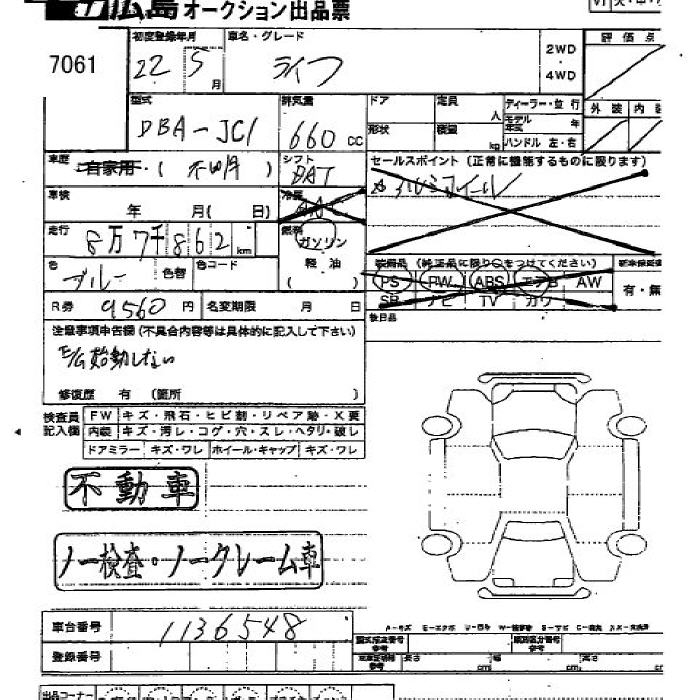 広島オークション出品票
7061
初度登録年月 車名・グレード 評価点
22 5月 ライフ 2WD・4WD
型式 排気量 ドア 定員 人 ディーラー・並行 外装 内装
DBA-JC1 660cc 形状 積量 kg モデル年式 年 ハンドル 左・右
車歴 自家用・(不明) シフト セールスポイント(正常に機能するものに限ります)
DAT アルミホイール
車検 年 月(日) 冷房
走行 8万7千862km 燃料 ガソリン 軽油 ( )
装備品(純正品に限り○をつけてください)
PS PW ABS エアB AW 有・無
SR ナビ TV カワ
色 ブルー 色替 色コード
後日品
R券 9560円 名変期限 月 日
注意事項申告欄(不具合内容等は具体的に記入して下さい)
E/G始動しない
修復歴 有 (箇所 )
検査員記入欄 FW キズ・飛石・ヒビ割・リペア跡・X要
内装 キズ・汚レ・コゲ・穴・スレ・ヘタリ・破レ
ドアミラー キズ・ワレ ホイール・キャップ キズ・ワレ
不動車
ノー検査・ノークレーム車
車台番号 1136548
型式指定番号 参考 類別区分番号 参考
登録番号
長さ cm 幅 cm 高さ cm
出品コーナー